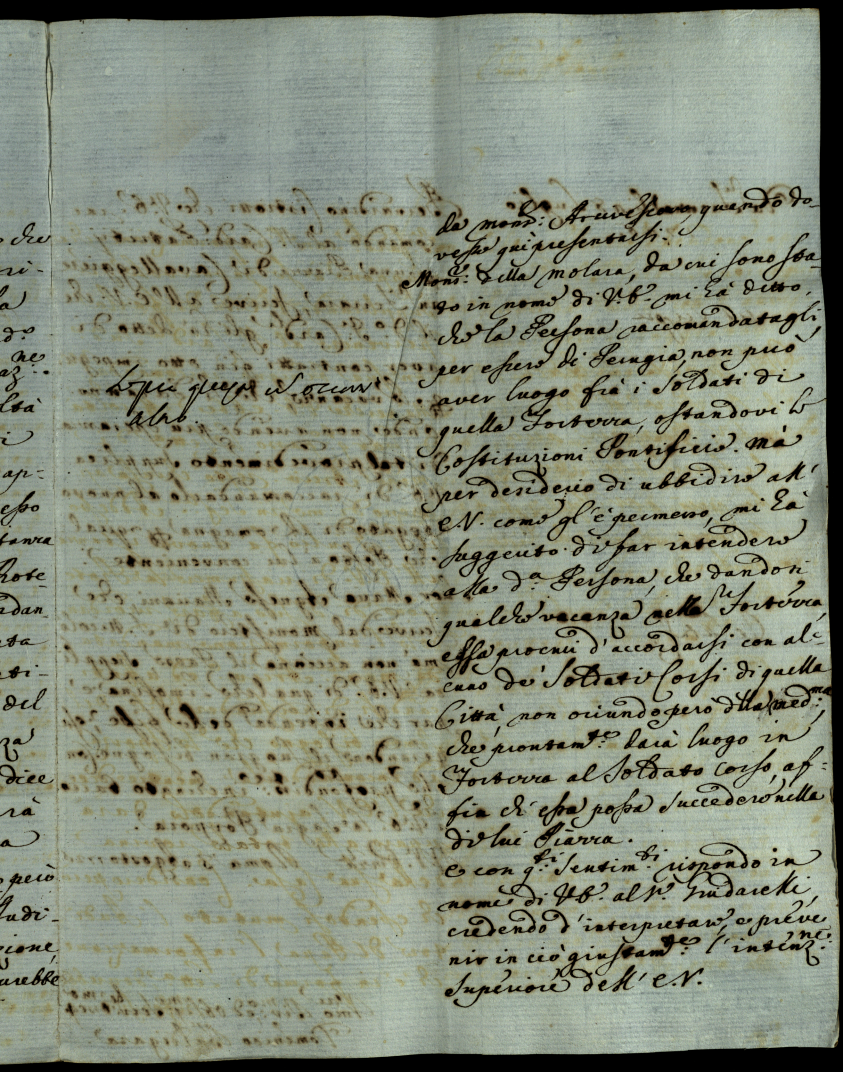 da mons.r Arcivescovo, quando do-
vesse qui presentarsi.
Mons.r della Molara, da cui sono sta-
to in nome di V.E. mi hà detto,
che la Persona raccomandatagli
per essere di Perugia, non può
aver luogo frà i Soldati di
quella Fortezza, ostandovi le
Costituzioni Pontificie. mà
per desiderio di ubbidire all'
E.V. come gl'è permesso, mi hà
suggerito di far intendere
alla d.a Persona, che dandosi
qualche vacanza nella Fortezza,
essa procuri d'accordarsi con al-
cuno de' Soldati Corsi di quella
Città, non ociundo pero dlla med.ma,
che prontam.te darà luogo in
Fortezza al Soldato Corso, af-
fin ch'essa possa succedere nella
di lui Piazza.
e con q.ti Sentim.ti rispondo in
nome di V.E. al S.r Giudarelli,
credendo d'interpretare, e preve-
nir in ciò giustam.te l'intenz.ne
superiore dell'E.V.
altro.
che
ri-
la
d.o
ne
az:
ltà
i
ap-
esso
tanza
Prote-
rdan-
eta
eti-
del
nza
dice
rà
a
però
Iudi-
zione
urebbe